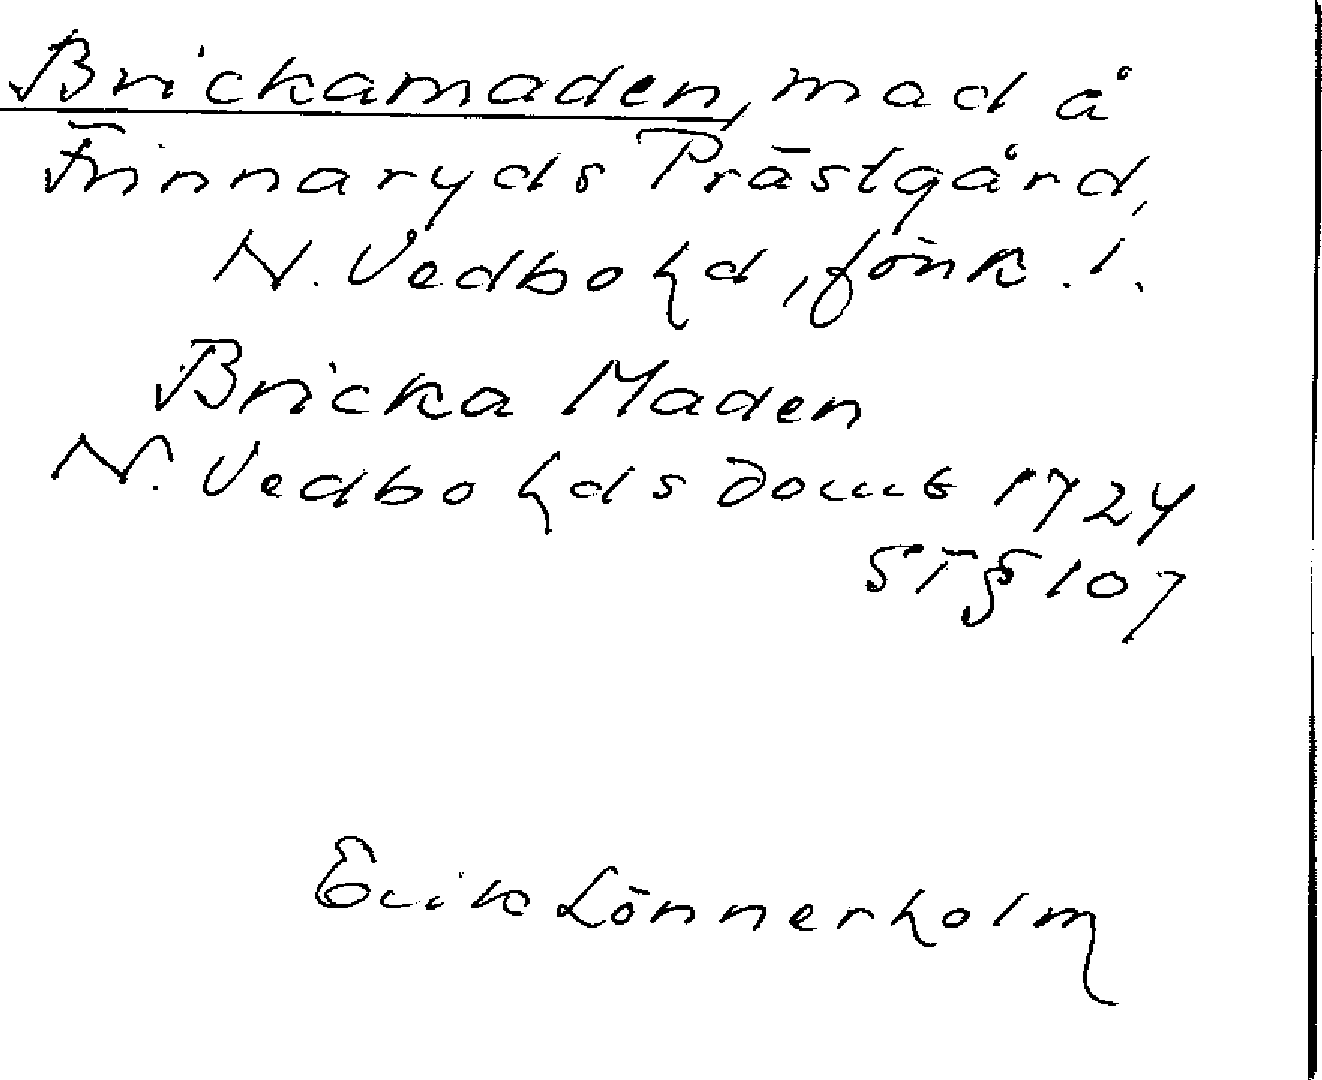 Brickamaden, mad å
Frinnaryds Prästgård,
N. Vedbo hd, Jönk. l.
Bricka Maden
N. Vedbo hds domb 1724
ST § 107
Erik Lönnerholm